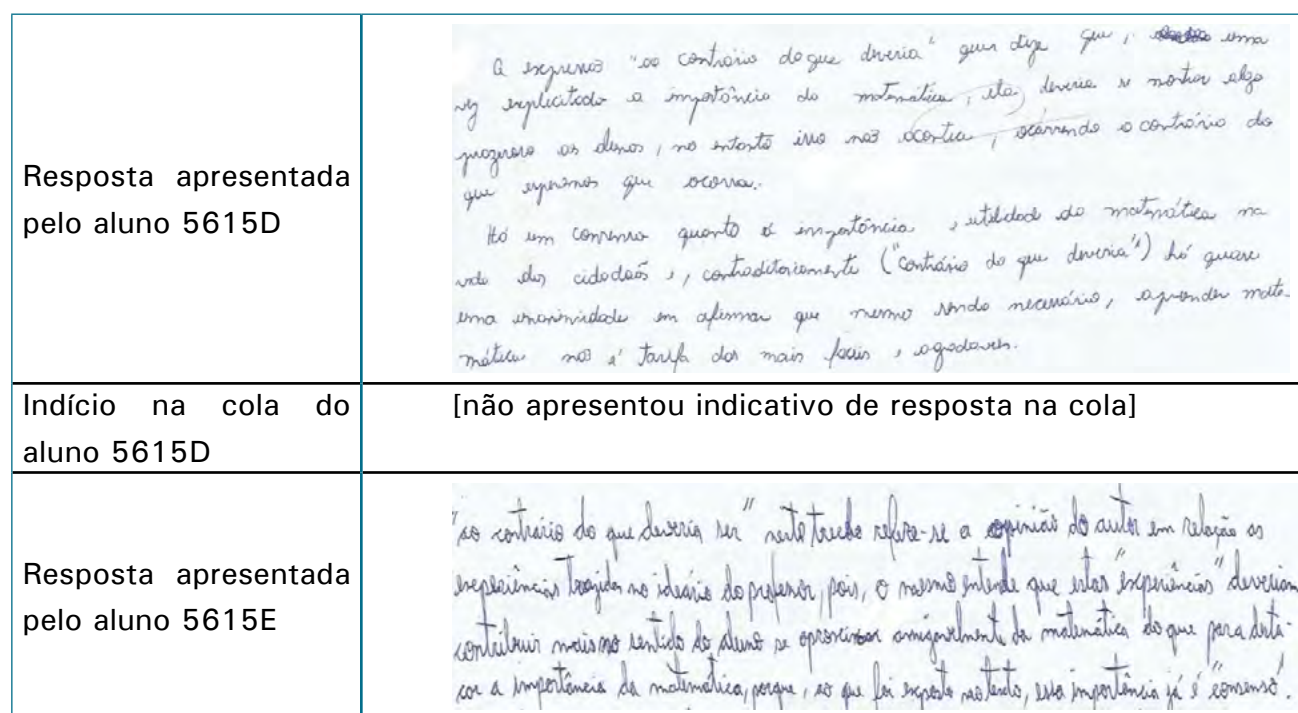 Resposta apresentada
pelo aluno 5615D
A expressão "ao contrário do que deveria" quer dizer que, uma
vez explicitado a importância da matemática, ela deveria se mostrar algo
prazeroso aos alunos, no entanto isso não acontece, ocorrendo o contrário do
que esperamos que ocorra.
Há um consenso quanto a importância e utilidade da matemática na
vida dos cidadãos e, contraditoriamente ("contrário do que deveria") há quase
uma unanimidade em afirmar que mesmo sendo necessário, aprender mate-
mática não é tarefa das mais fáceis e agradáveis.
Indício na cola do
aluno 5615D
[não apresentou indicativo de resposta na cola]
Resposta apresentada
pelo aluno 5615E
"ao contrário do que deveria ser" neste trecho refere-se a opinião do autor em relação as
experiências trazidas no ideário do professor, pois, o mesmo entende que estas "experiências" deveriam
contribuir mais no sentido do aluno se aproximar amigavelmente da matemática do que para desta-
car a importância da matemática, porque, ao que foi exposto no texto, essa importância já é "consenso".